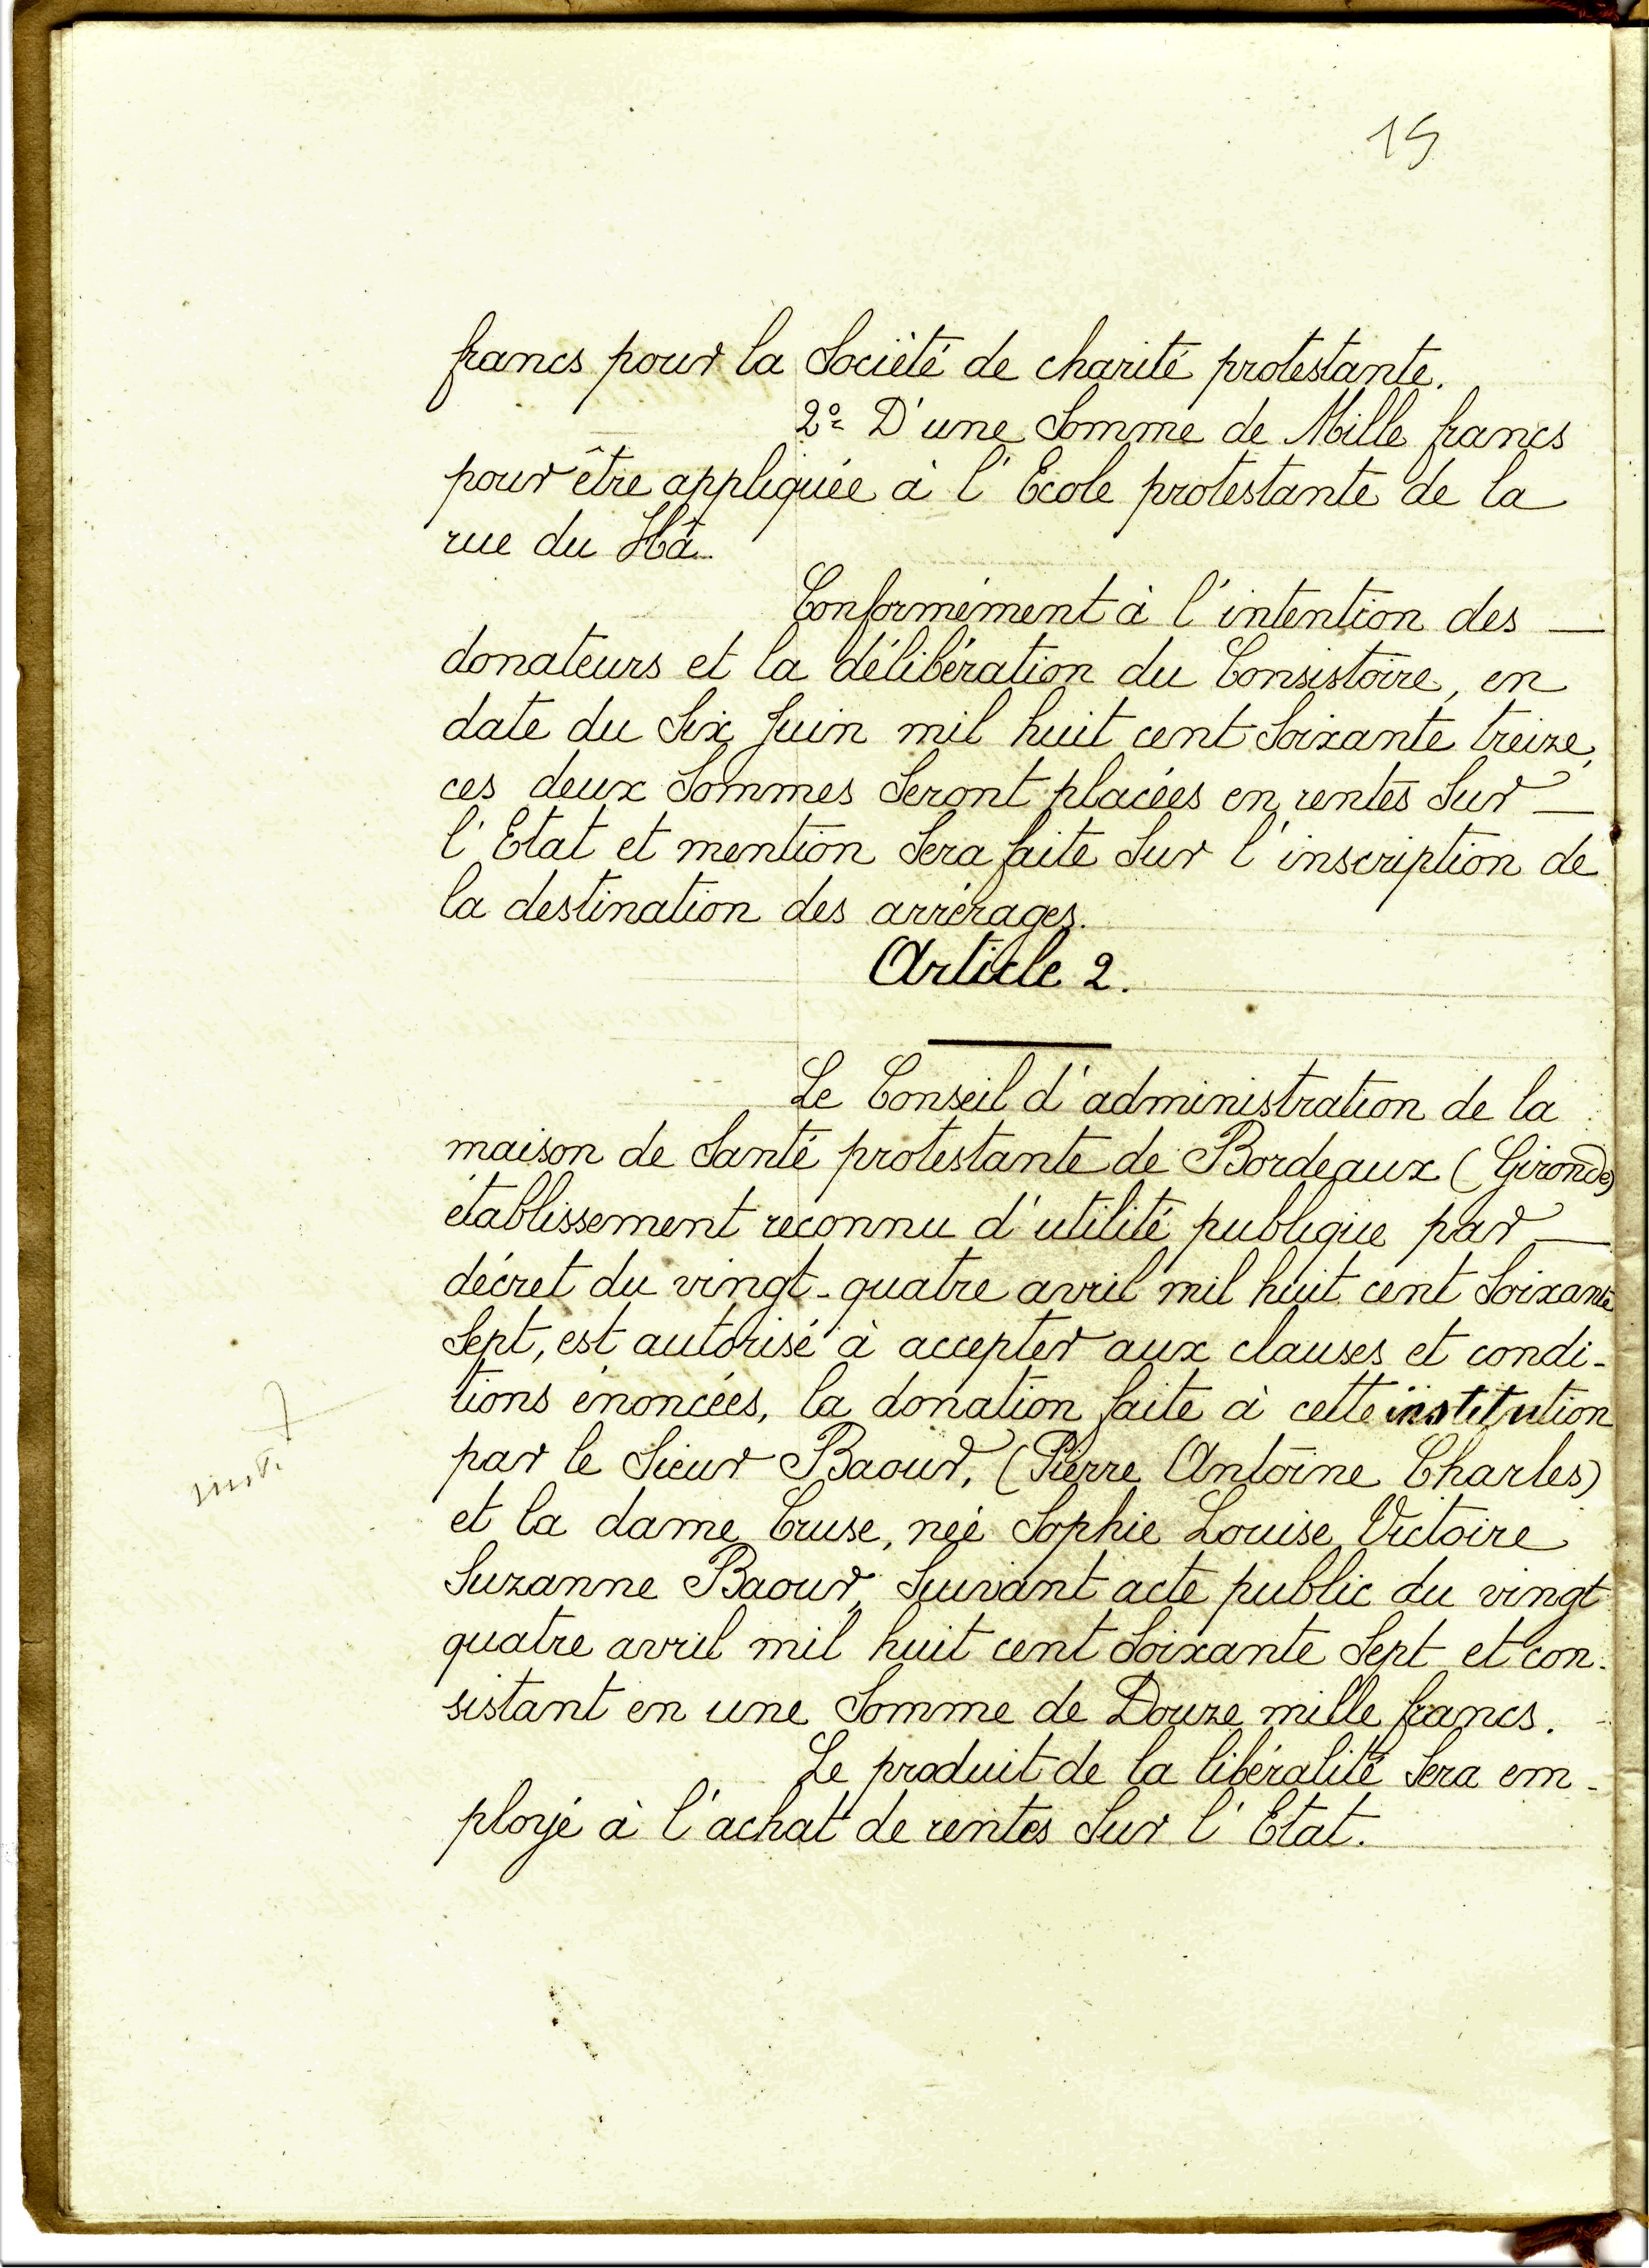 15
francs pour la Société de charité protestante.
2º D'une Somme de Mille francs
pour être appliquée à l'Ecole protestante de la
rue du Hâ.
Conformément à l'intention des —
donateurs et la délibération du Consistoire, en
date du Six Juin mil huit cent Soixante treize,
ces deux Sommes Seront placées en rentes Sur —
l'Etat et mention Sera faite Sur l'inscription de
la destination des arrérages.
Article 2.
Le Conseil d'administration de la
maison de Santé protestante de Bordeaux (Gironde)
établissement reconnu d'utilité publique par —
décret du vingt-quatre avril mil huit cent Soixante
Sept, est autorisé à accepter aux clauses et condi-
tions énoncées, la donation faite à cette institution
par le Sieur Baour, (Pierre Antoine Charles)
et la dame Cruse, née Sophie Louise Victoire
Suzanne Baour, Suivant acte public du vingt
quatre avril mil huit cent Soixante Sept et con-
sistant en une Somme de Douze mille francs.
Le produit de la libéralité Sera em-
ployé à l'achat de rentes Sur l'Etat.